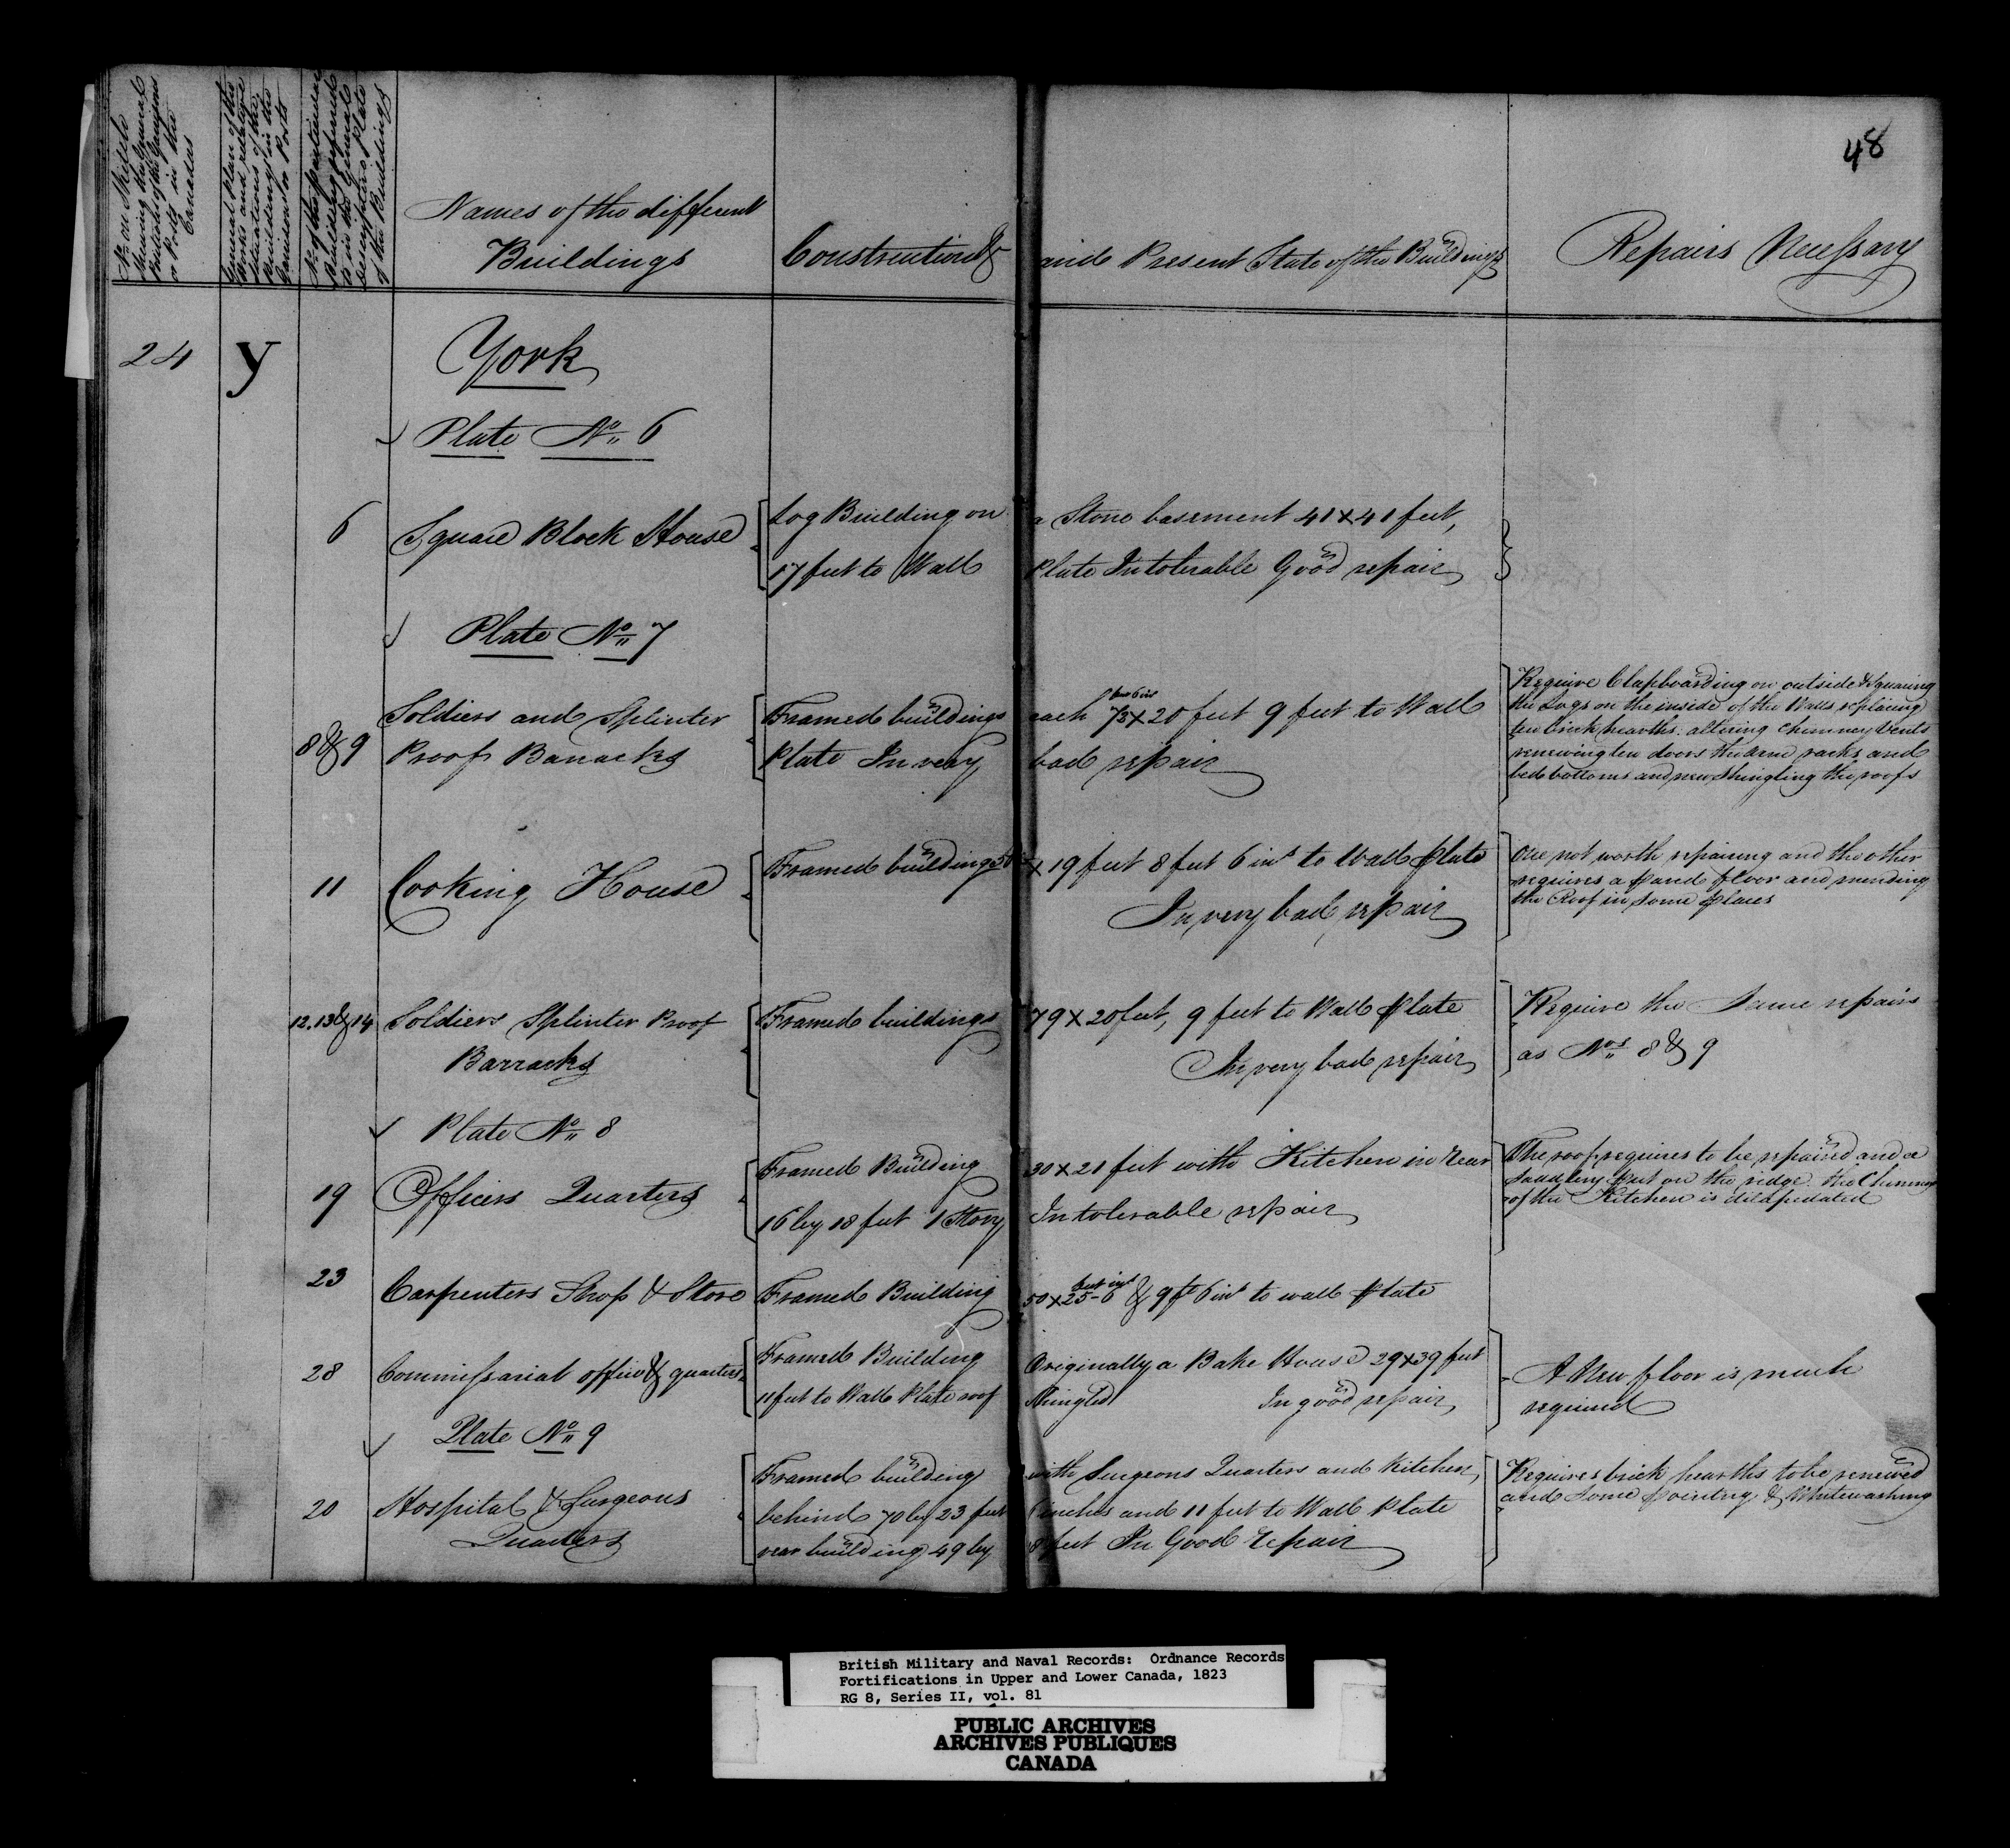 48
No. on Skitle
Shewing the General
Position of the Garrisons
or Posts in the
Canadas
General Plan of the
Works and relative
situations of the
Buildings in the
Garrisons or Posts
No. of the particular
Buildings referred
to in the General
descriptive Plate
of the Buildings
Names of the different
Buildings
Construction &
and Present State of the Buildings
Repairs Necessary
24 y York
Plate No. 6
6 Square Block House Log Building on a Stone basement 41 x 41 feet,
17 feet to Wall Plate In tolerable Good repair
Plate No. 7
8 & 9 Soldiers and Splinter
Proof Barracks
Framed buildings each 73 feet 6 ins x 20 feet 9 feet to Wall
Plate In very bad repair
Require Clapboarding on outside & Squaring
the Logs on the inside of the Walls, replacing
ten brick hearths, altering Chimney Vents
renewing ten doors the arm racks and
bed bottoms and new Shingling the roofs
11 Cooking House Framed buildings x 19 feet 8 feet 6 ins to Wall Plate
In very bad repair
One not worth repairing and the other
requires a sand floor and mending
the Roof in some places
12. 13 & 14 Soldiers Splinter Proof
Barracks
Framed buildings 79 x 20 feet, 9 feet to Wall Plate
In very bad repair
Require the Same repairs
as Nos. 8 & 9
Plate No. 8
19 Officers Quarters Framed Building 30 x 21 feet with Kitchen in Rear
16 by 18 feet 1 Story In tolerable repair
The roof requires to be repaired and a
Saddling put on the ridge. the Chimney
of the Kitchen is dilapidated
23 Carpenters Shop & Store Framed Building 50 x 25 feet - 6 ins & 9 ft 6 ins to wall Plate
28 Commissariat office & quarters Framed Building Originally a Bake House 29 x 39 feet
11 feet to Wall Plate roof Shingled In good repair
A New floor is much
required
Plate No. 9
20 Hospital & Surgeons
Quarters
Framed building with Surgeons Quarters and Kitchen,
behind 70 by 23 feet inches and 11 feet to Wall Plate
rear building 49 by 18 feet In Good Repair
Requires brick hearths to be renewed
and some pointing & Whitewashing
British Military and Naval Records: Ordnance Records
Fortifications in Upper and Lower Canada, 1823
RG 8, Series II, vol. 81
PUBLIC ARCHIVES
ARCHIVES PUBLIQUES
CANADA